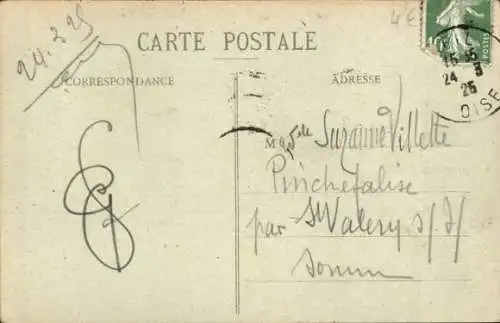 24.3.25
4€
CARTE POSTALE
CORRESPONDANCE
ADRESSE
15 15
24 3
25
OISE
POSTES
Melle Suzanne Villette
Pinchefalise
par St Valery s/s/
Somme